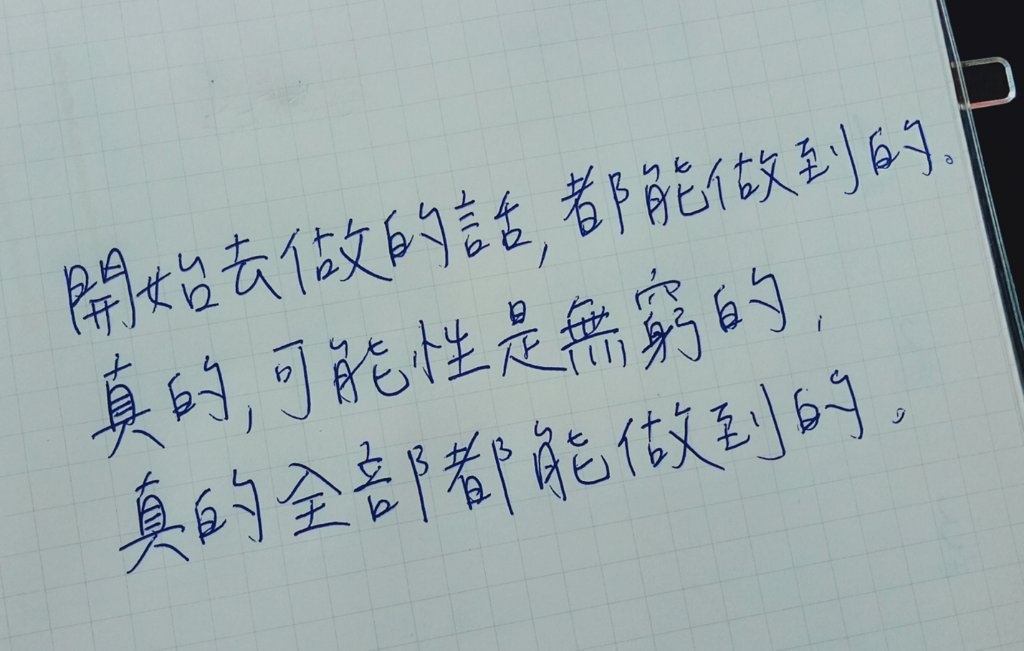 開始去做的話,都能做到的。
真的,可能性是無窮的,
真的全部都能做到的。